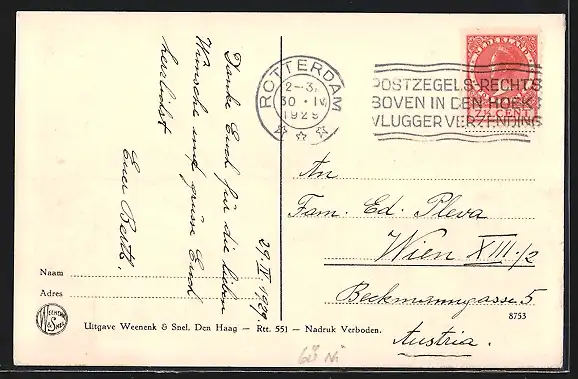 Danke Euch für die lieben
Wünsche und grüsse Euch
herzlichst
Euer Bertl.
29.IV.1929.
ROTTERDAM
2-3
30 · IV
1929
POSTZEGELS RECHTS
BOVEN IN DEN HOEK
VLUGGER VERZENDING
NEDERLAND
7½ CENT
An
Fam. Ed. Pleva
Wien XIII/2
Beckmanngasse 5
Austria.
Naam
Adres
WEENENK & SNEL
Uitgave Weenenk & Snel, Den Haag — Rtt. 551 — Nadruk Verboden.
8753